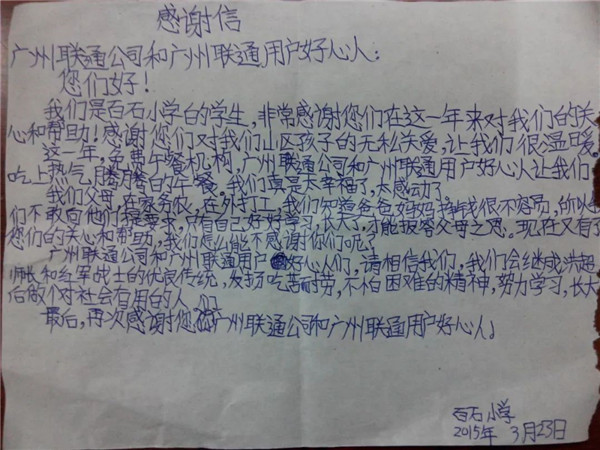 感谢信
广州联通公司和广州联通用户好心人:
您们好!
我们是百石小学的学生,非常感谢您们在这一年来对我们的关
心和帮助!感谢您们对我们山区孩子的无私关爱,让我们很温暖。
这一年,免费午餐机构,广州联通公司和广州联通用户好心人让我们
吃上热气腾腾的午餐。我们真是太幸福了,太感动了。
我们父母,在家务农,在外打工,我们知道爸爸妈妈挣钱很不容易,所以
们不敢向他们提要求,只有自己好好学习,长大了,才能报答父母之恩。现在又有了
您们的关心和帮助,我们怎么能不感谢你们呢?
广州联通公司和广州联通用户好心人们,请相信我们,我们会继承洪超
师长和红军战士的优良传统,发扬吃苦耐劳,不怕困难的精神,努力学习,长大
后做个对社会有用的人。
最后,再次感谢您们广州联通公司和广州联通用户好心人。
百石小学
2015年 3月23日